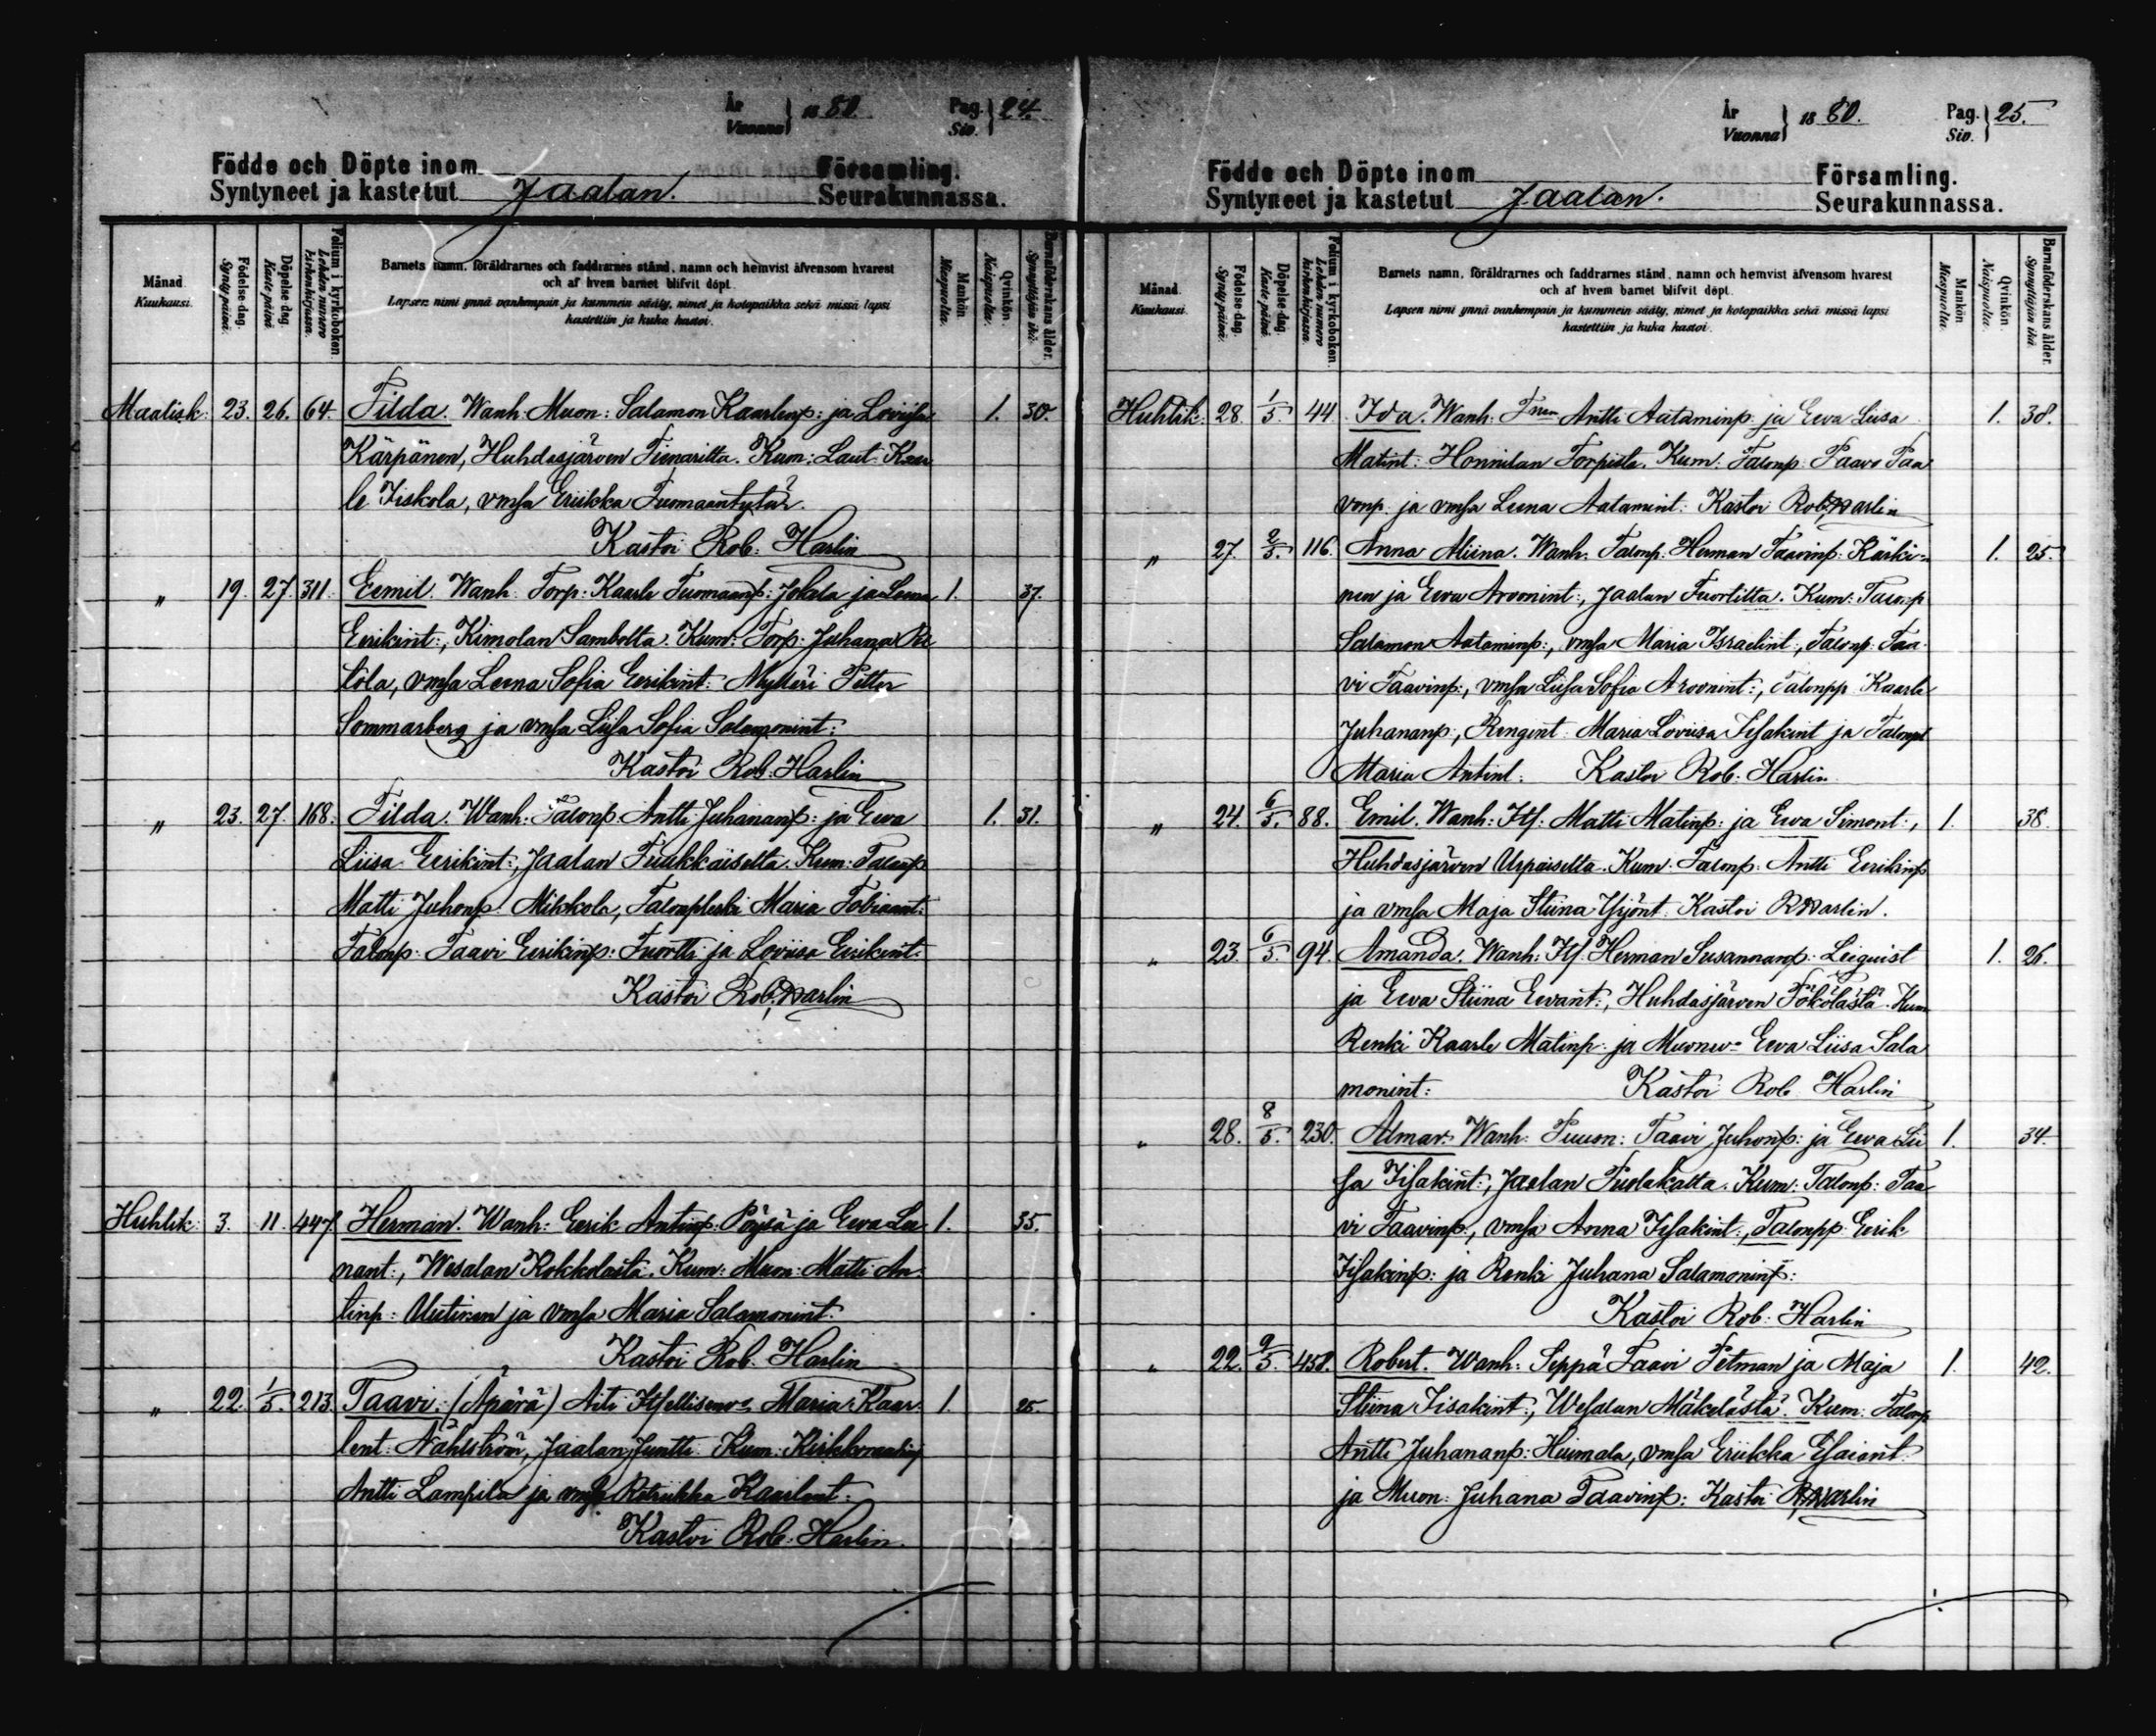 År
Vuonna } 1880.
Pag.
Siv. } 24.
Födde och Döpte inom Församling.
Syntyneet ja kastetut Jaalan. Seurakunnassa.
Månad. Kuukausi.
Födelse dag. Syntypäivä.
Döpelse dag. Kaste päivä.
Folium i kyrkoboken. Lehden numero kirkonkirjassa.
Barnets namn, föräldrarnes och faddrarnes stånd, namn och hemvist äfvensom hvarest
och af hvem barnet blifvit döpt.
Lapsen nimi ynnä vanhempain ja kummein sääty, nimet ja kotopaikka sekä missä lapsi
kastettiin ja kuka kastoi.
Mankön. Miespuolta.
Qvinkön. Naispuolta.
Barnaföderskans ålder. Synnyttäjän ikä.
Maalisk: 23. 26. 64. Tilda. Wanh: Muon: Salamon Kaarlenp: ja Lovisa 1. 30.
Kärpänen, Huhdasjärven Tienarilta. Kum: Laut. Kaar
le Iiskola, vmsa Eriikka Tuomaantytär.
Kastoi Rob: Harlin
" 19. 27. 311. Eemil. Wanh: Torp: Kaarle Tuomaanp: Jokela ja Leena 1. 37.
Eerikint:, Kimolan Sambolta. Kum: Torp: Juhana
tola, vmsa Leena Sofia Eerikint: Mylläri Petter
Sommarberg ja vmsa Liisa Sofia Salamonint:
Kastoi Rob: Harlin
" 23. 27. 168. Tilda. Wanh: Talonp. Antti Juhananp: ja Eeva 1. 31.
Liisa Eerikint:, Jaalan Pukkäiseltä. Kum: Talonp
Matti Juhonp: Mikkola, Talonpleski Maria Tobiaant:
Talonp: Taavi Eerikinp: Tuortti ja Loviisa Eerikint:
Kastoi Rob: Harlin
Huhtik: 3. 11. 447. Herman. Wanh: Eerik Antinp: Pöyjä ja Eeva Lee 1. 35.
nant:, Wesalan Kokkolasta. Kum: Muon: Matti An
tinp: Uutinen ja vmsa Maria Salamonint:
Kastoi Rob. Harlin
" 22. 1/5. 213. Taavi. (Äpärä) Äiti Itsellisenv: Maria Kaar 1. 25.
lent: Nähström, Jaalan Juntti. Kum: Kirkkovaltij
Antti Lampila ja vmsa Kaarlent:
Kastoi Rob: Harlin.
År
Vuonna } 1880.
Pag.
Siv. } 25.
Födde och Döpte inom Församling.
Syntyneet ja kastetut Jaalan. Seurakunnassa.
Månad. Kuukausi.
Födelse dag. Syntypäivä.
Döpelse dag. Kaste päivä.
Folium i kyrkoboken. Lehden numero kirkonkirjassa.
Barnets namn, föräldrarnes och faddrarnes stånd, namn och hemvist äfvensom hvarest
och af hvem barnet blifvit döpt.
Lapsen nimi ynnä vanhempain ja kummein sääty, nimet ja kotopaikka sekä missä lapsi
kastettiin ja kuka kastoi.
Mankön. Miespuolta.
Qvinkön. Naispuolta.
Barnaföderskans ålder. Synnyttäjän ikä.
Huhtik: 28. 1/5. 44. Ida. Wanh: Antti Aataminp: ja Eeva Liisa 1. 38.
Matint: Honnilan Torpilta. Kum: Talonp: Paavo Paa
vonp. ja vmsa Leena Aatamint: Kastoi Rob. Harlin
" 27. 2/5. 116. Anna Miina. Wanh: Talonp: Herman Taavinp: Kärki- 1. 25.
nen ja Eeva Aronint:, Jaalan Tuortilta. Kum: Talonp
Salamon Aataminp:, vmsa Maria Israelint:, Talonp: Taa
vi Taavinp:, vmsa Liisa Sofia Aronint:, Talonpp Kaarle
Juhananp:, Rengint: Maria Loviisa Iisakint ja Talonpt
Maria Antint: Kastoi Rob: Harlin
" 24. 6/5. 88. Emil. Wanh: Its: Matti Matinp: ja Eeva Simont:, 1. 38.
Huhdasjärven Urpaiselta. Kum: Talonp: Antti Eerikinp
ja vmsa Maja Stiina Yrjönt: Kastoi R Harlin.
" 23. 6/5. 94. Amanda. Wanh: Its. Herman Susannanp: Leiquist 1. 26.
ja Eeva Stiina Eevant:, Huhdasjärven Tökölästä. Kum
Renki Kaarle Matinp: ja Muonv: Eeva Liisa Sala
monint: Kastoi Rob Harlin
" 28. 8/5. 230. Almar. Wanh: Puuon: Taavi Juhonp: ja Eeva Lii 1. 34.
sa Iisakint:, Jaalan Puolakalta. Kum: Talonp: Taa
vi Taavinp:, vmsa Anna Iisakint:, Talonpp Eerik
Iisakinp: ja Renki Juhana Salamoninp:
Kastoi Rob: Harlin
" 22. 9/5. 458. Robert. Wanh: Seppä Taavi Petman ja Maja 1. 42.
Stiina Iisakint:, Wesalan Mäkelästä. Kum: Talonp
Antti Juhananp: Heimala, vmsa Eriikka Esaiant:
ja Muon: Juhana Taavinp: Kastoi R Harlin